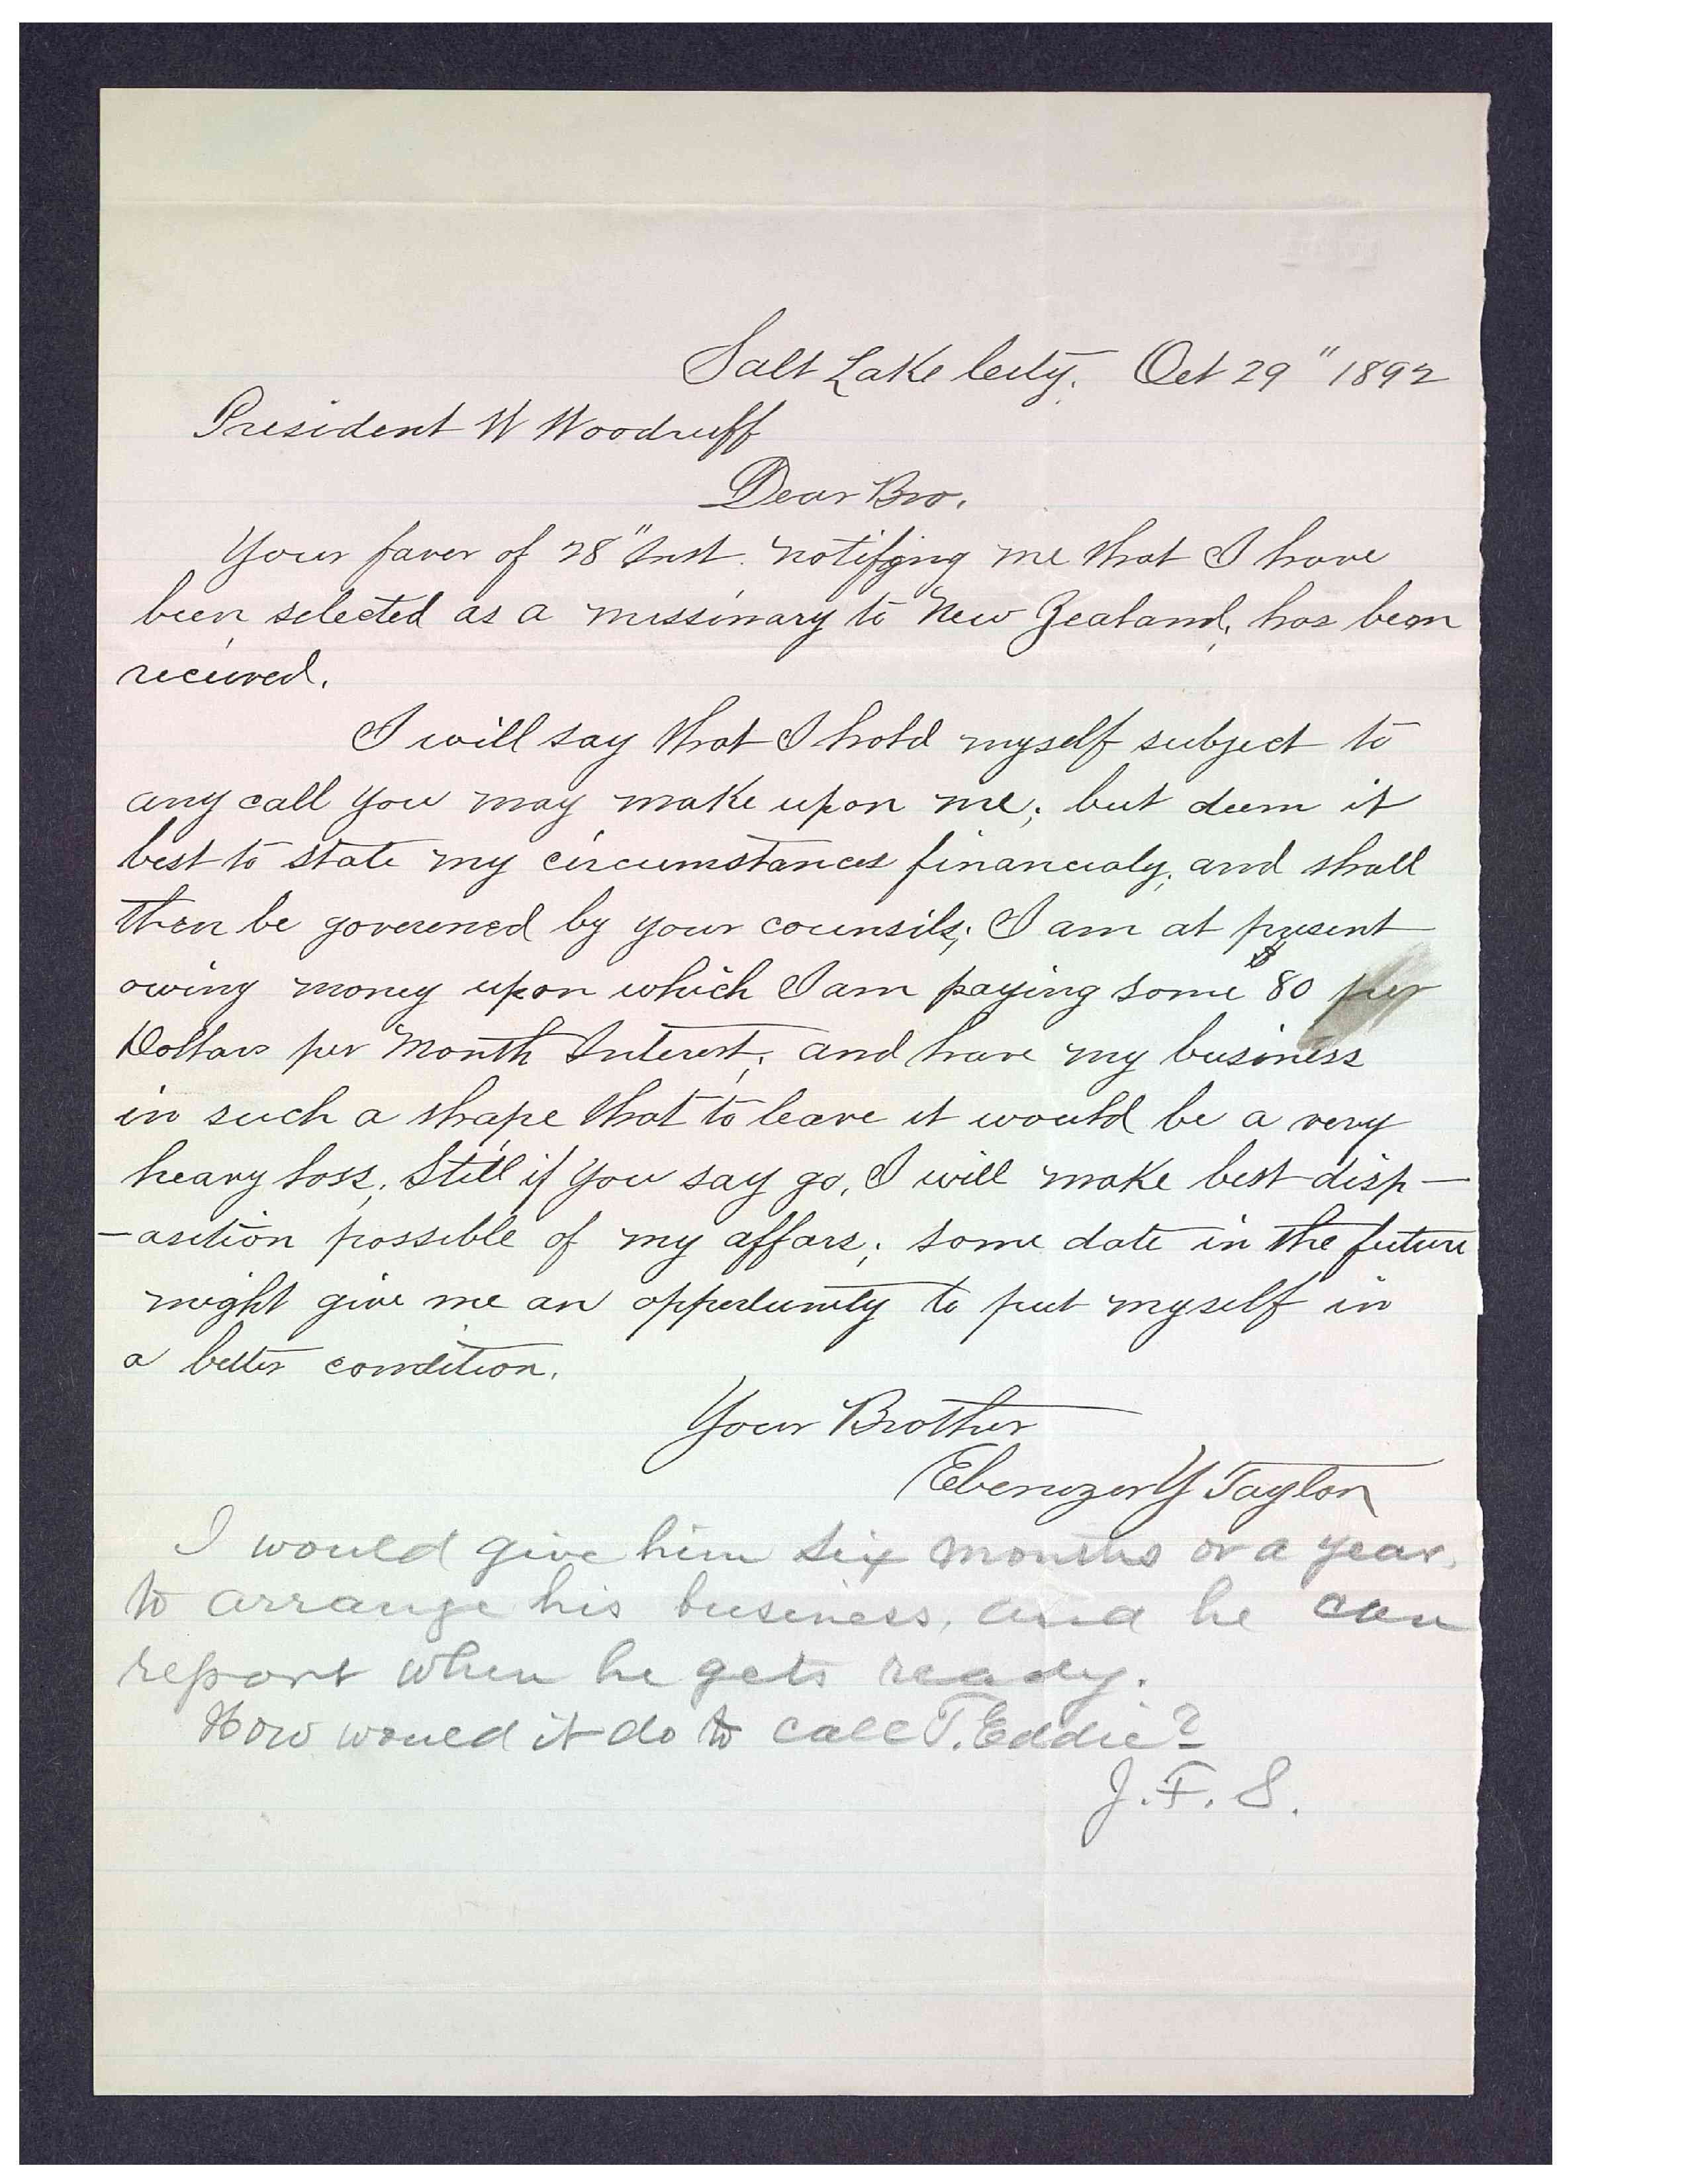 Salt Lake City. Oct 29" 1892
President W Woodruff
Dear Bro.
Your faver of 28" Inst. notifing me that I have
been selected as a missinary to New Zealand, has been
recieved.
I will say that I hold myself subject to
any call you may make upon me; but deem it
best to state my circumstances financialy, and shall
then be goverened by your counsils; I am at present
owing money upon which I am paying some $80 per
Dollars per Month Interest; and have my business
in such a shape that to leave it would be a very
heavy loss, Still if you say go, I will make best disp-
-asition possible of my affars; some date in the future
might give me an opperlunity to put myself in
a better condition.
Your Brother
Ebenezer Y Taylor
I would give him six months or a year,
to arrange his business, and he can
report when he gets ready.
How would it do to call T. Eddie?
J. F. S.